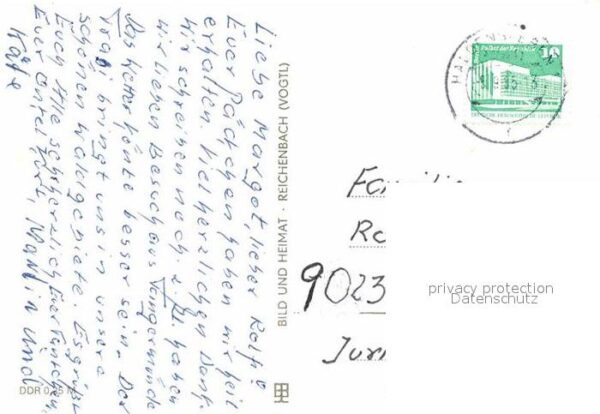 Liebe Margot, lieber Ralf!
Euer Päckchen haben wir heil
erhalten. Vielherzlichen Dank.
Wir schreiben noch. z. Zt. haben
wir lieben Besuch aus Tangermünde
Das Wetter könte besser sein. Der
Trabi bringt uns in unsere
schönen Waldgebiete. Es grüßt
Euch Alle sehr herzlich Euer
Euer Onkel Kurt, Martin und
Käte
BILD UND HEIMAT · REICHENBACH (VOGTL)
DDR 0,25 M
Palast der Republik 10
DEUTSCHE DEMOKRATISCHE REPUBLIK
9023
privacy protection
Datenschutz